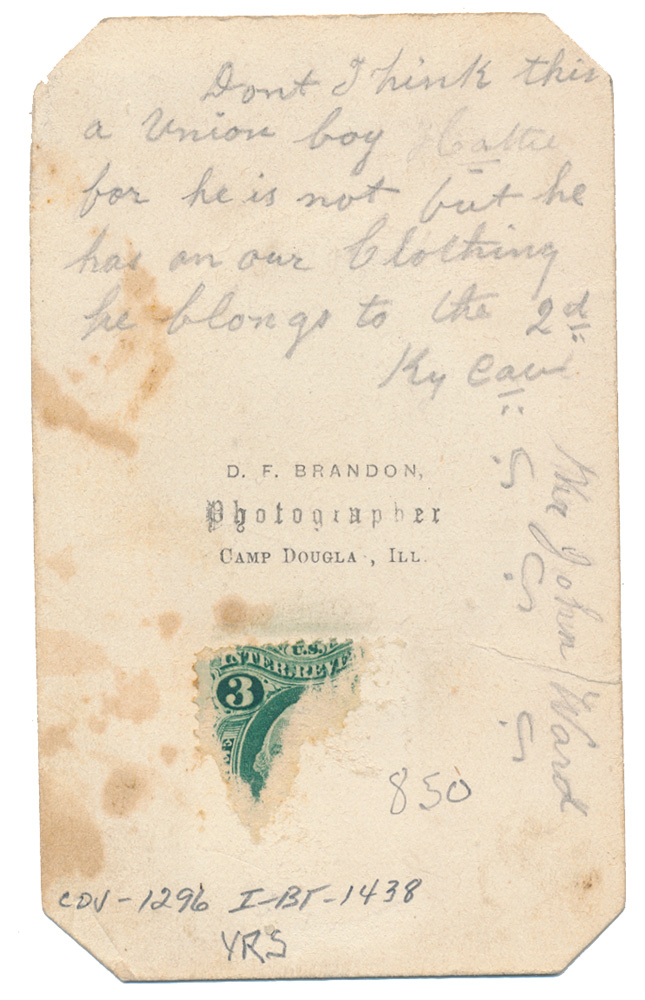 Dont Think this
a Union boy Hattie
for he is not but he
has on our Clothing
he blongs to the 2d
Ky Cav
Mr John Ward
D. F. BRANDON,
Photographer
CAMP DOUGLA , ILL.
U.S.
INTER.REVE
3
850
CDV-1296 I-BT-1438
YRS